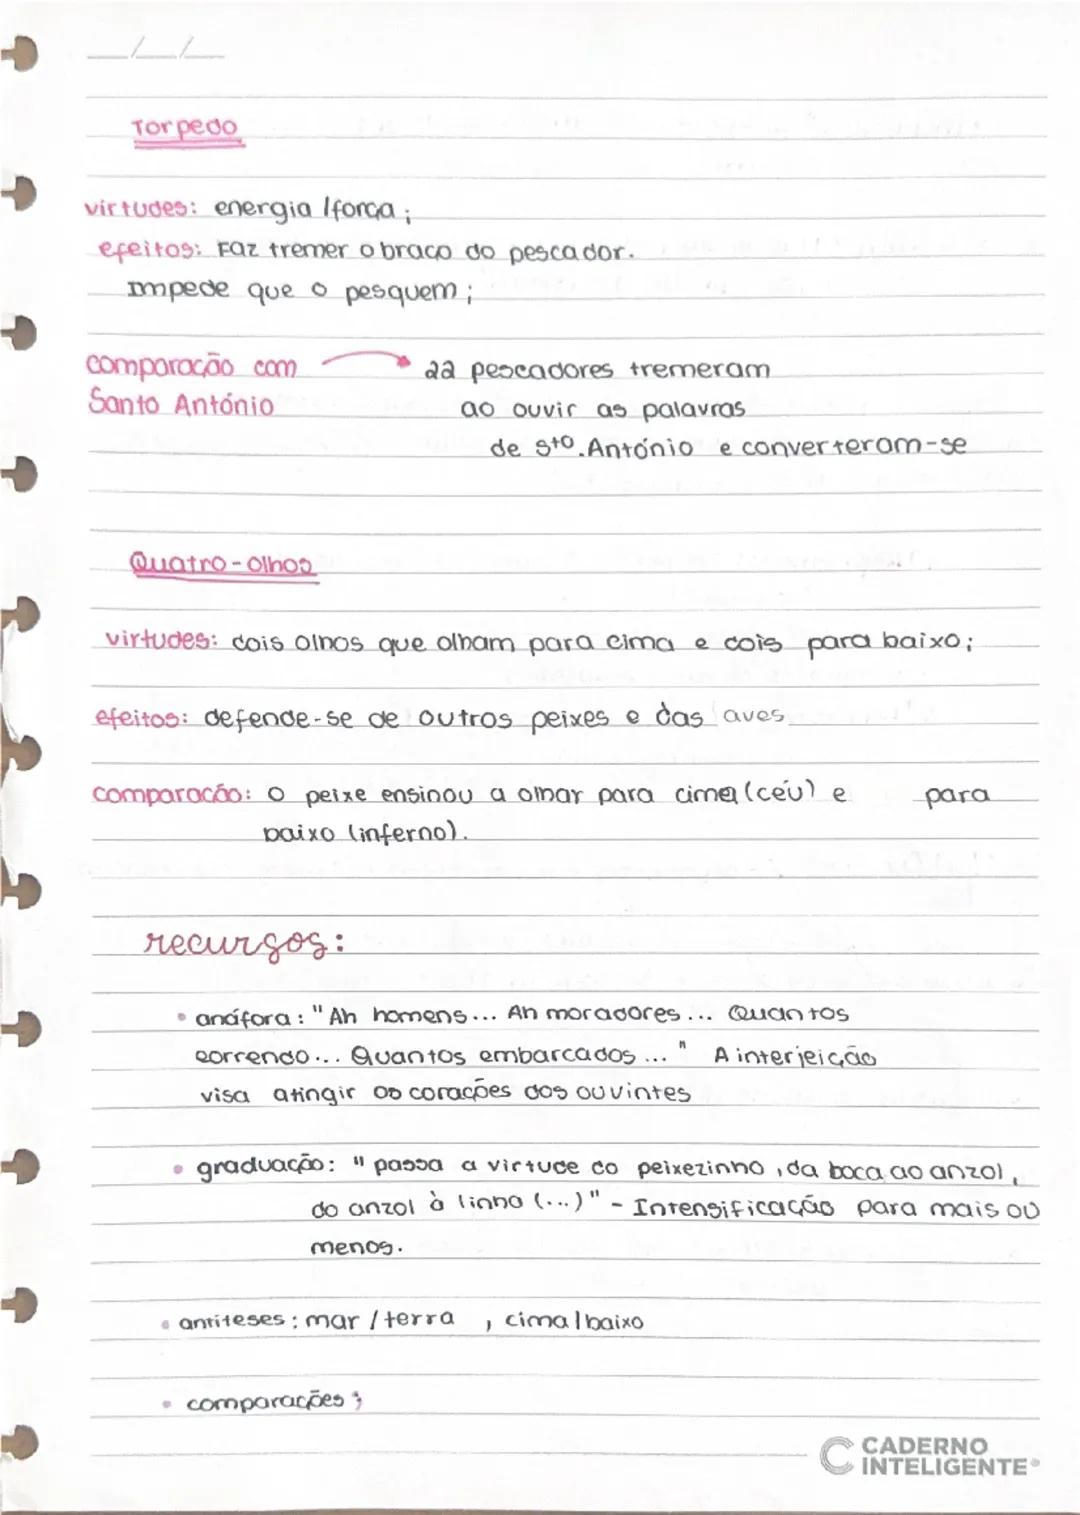 __/__/__
Torpedo
virtudes: energia /força;
efeitos: Faz tremer o braço do pescador.
Impede que o pesquem;
comparação com → 22 pescadores tremeram
Santo António ao ouvir as palavras
de Sto. António e converteram-se
Quatro-olhos
virtudes: dois olhos que olham para cima e dois para baixo;
efeitos: defende-se de outros peixes e das aves
comparação: O peixe ensinou a olhar para cima (céu) e para
baixo (inferno).
recursos:
• anáfora: "Ah homens... Ah moradores... Quantos
correndo... Quantos embarcados..." A interjeição
visa atingir os corações dos ouvintes
• graduação: "passa a virtude do peixezinho, da boca ao anzol,
do anzol à linha (...)" - Intensificação para mais ou
menos.
• antiteses: mar / terra , cima/baixo
• comparações;
CADERNO
INTELIGENTE®